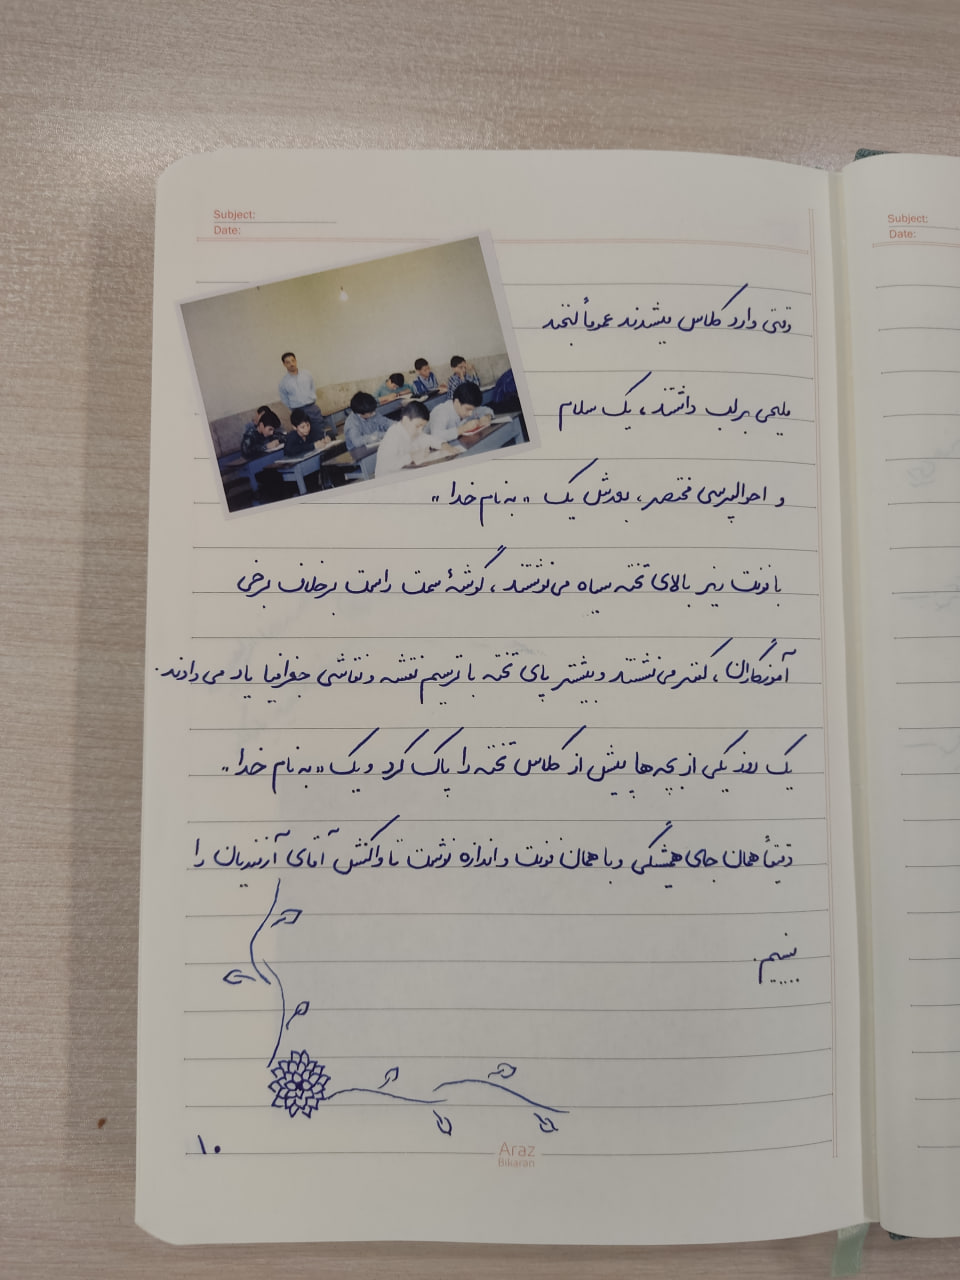 Subject:
Date:
وقتی وارد کلاس میشدند عموماً لبخند
ملیحی بر لب داشتند، یک سلام
و احوالپرسی مختصر، بعدش یک "به نام خدا"
با فونت ریز بالای تخته سیاه می‌نوشتند، گوشهٔ سمت راست برخلاف برخی
آموزگاران، کمتر می‌نشستند و بیشتر پای تخته با ترسیم نقشه و نقاشی جغرافیا یاد می‌دادند.
یک روز یکی از بچه‌ها پیش از کلاس تخته را پاک کرد و یک "به نام خدا"
دقیقاً همان جای همیشگی و با همان فونت و اندازه نوشت تا واکنش آقای آژندیان را
ببینیم.
۱۰
Araz
Bikaran
Subject:
Date: